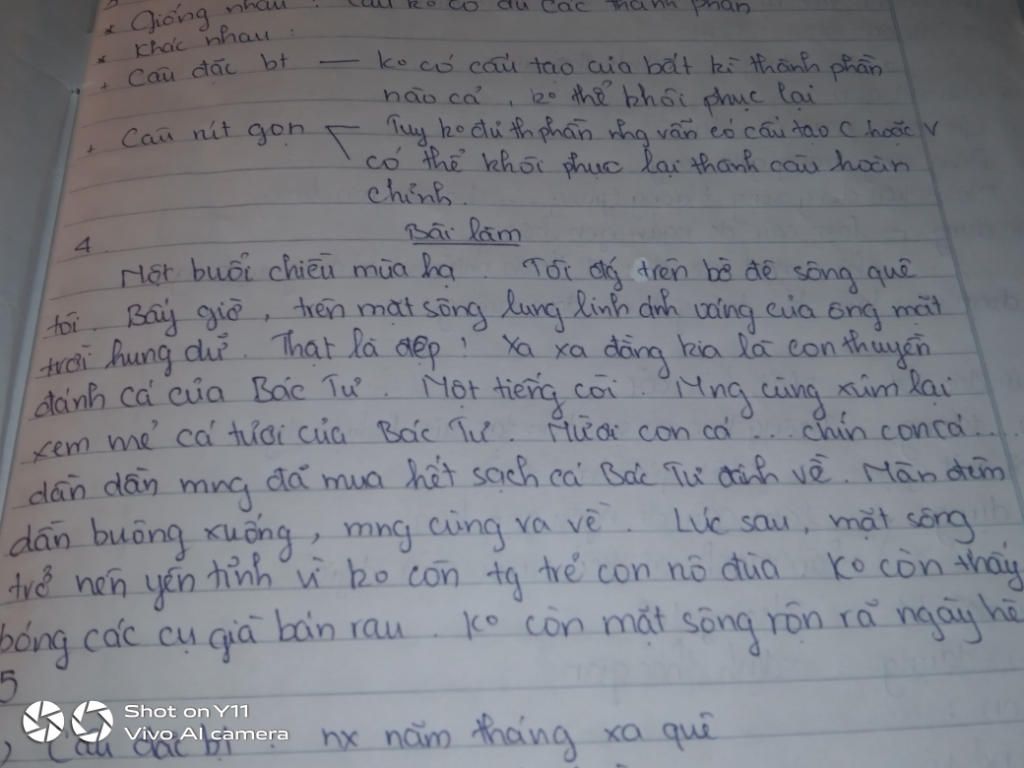 * Giống nhau : Câu ko có đủ các thành phần
* Khác nhau :
+ Câu đặc bt — ko có cấu tạo của bất kì thành phần
nào cả, ko thể khôi phục lại
+ Câu rút gọn Tuy ko đủ thphần nhg vẫn có cấu tạo C hoặc V
có thể khôi phục lại thành câu hoàn
chỉnh.
4 Bài làm
Một buổi chiều mùa hạ Tôi đg trên bờ đê sông quê
tôi. Bấy giờ, trên mặt sông lung linh ánh vàng của ông mặt
trời hung dữ. Thật là đẹp! Xa xa đằng kia là con thuyền
đánh cá của Bác Tư. Một tiếng còi. Mng cùng xúm lại
xem mẻ cá tươi của Bác Tư. Mười con cá... chín con cá...
dần dần mng đã mua hết sạch cá Bác Tư đánh về. Màn đêm
dần buông xuống, mng cùng ra về. Lúc sau, mặt sông
trở nên yên tĩnh vì ko còn tg trẻ con nô đùa Ko còn thấy
bóng các cụ già bán rau. Ko còn mặt sông rộn rã ngày hè
5
) Câu đặc bt : nx năm tháng xa quê
Shot on Y11
Vivo AI camera